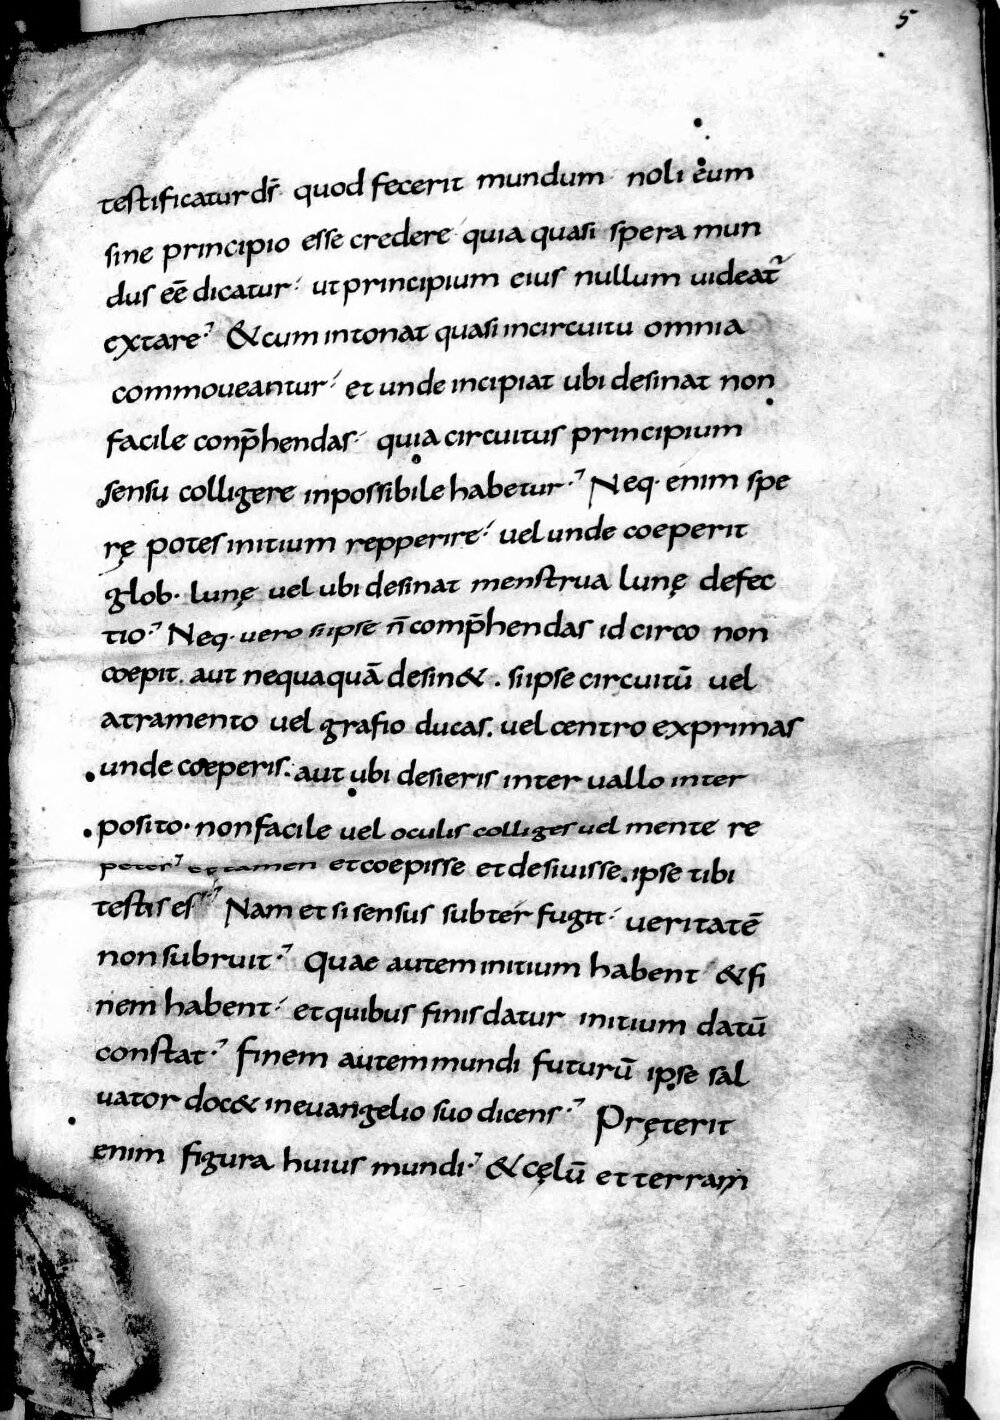 5
testificatur ds̄ quod fecerit mundum noli eum
sine principio esse credere quia quasi spera mun
dus eē dicatur ut principium eius nullum uideat᷑
extare &cum intonat quasi incircuitu omnia
commoueantur et unde incipiat ubi desinat non
facile conp̄hendas quia circuitus principium
sensu colligere inpossibile habetur. Neq· enim spe
rę potes initium repperire uel unde coeperit
glob· lunę uel ubi desinat menstrua lunę defec
tio Neq· uero siipse n̄ comp̄hendas idcirco non
coepit. aut nequaquā desin&. siipse circuitū uel
atramento uel grafio ducas. uel centro exprimas
unde coeperis. aut ubi desieris inter uallo inter
posito· non facile uel oculis colliges uel mente re
petes et tamen et coepisse et desiuisse. ipse tibi
testis es Nam et si sensus subter fugit ueritatē
non subruit. Quae autem initium habent &fi
nem habent et quibus finis datur initium datū
constat. finem autem mundi futurū ipse sal
uator doc& in euangelio suo dicens. Pręterit
enim figura huius mundi. &cęlū et terram